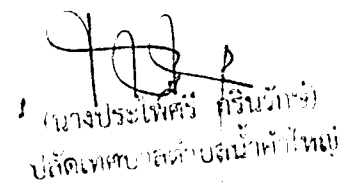 (นางประไพศรี ศรินรักษ์)
ปลัดเทศบาลตำบลน้ำคำใหญ่